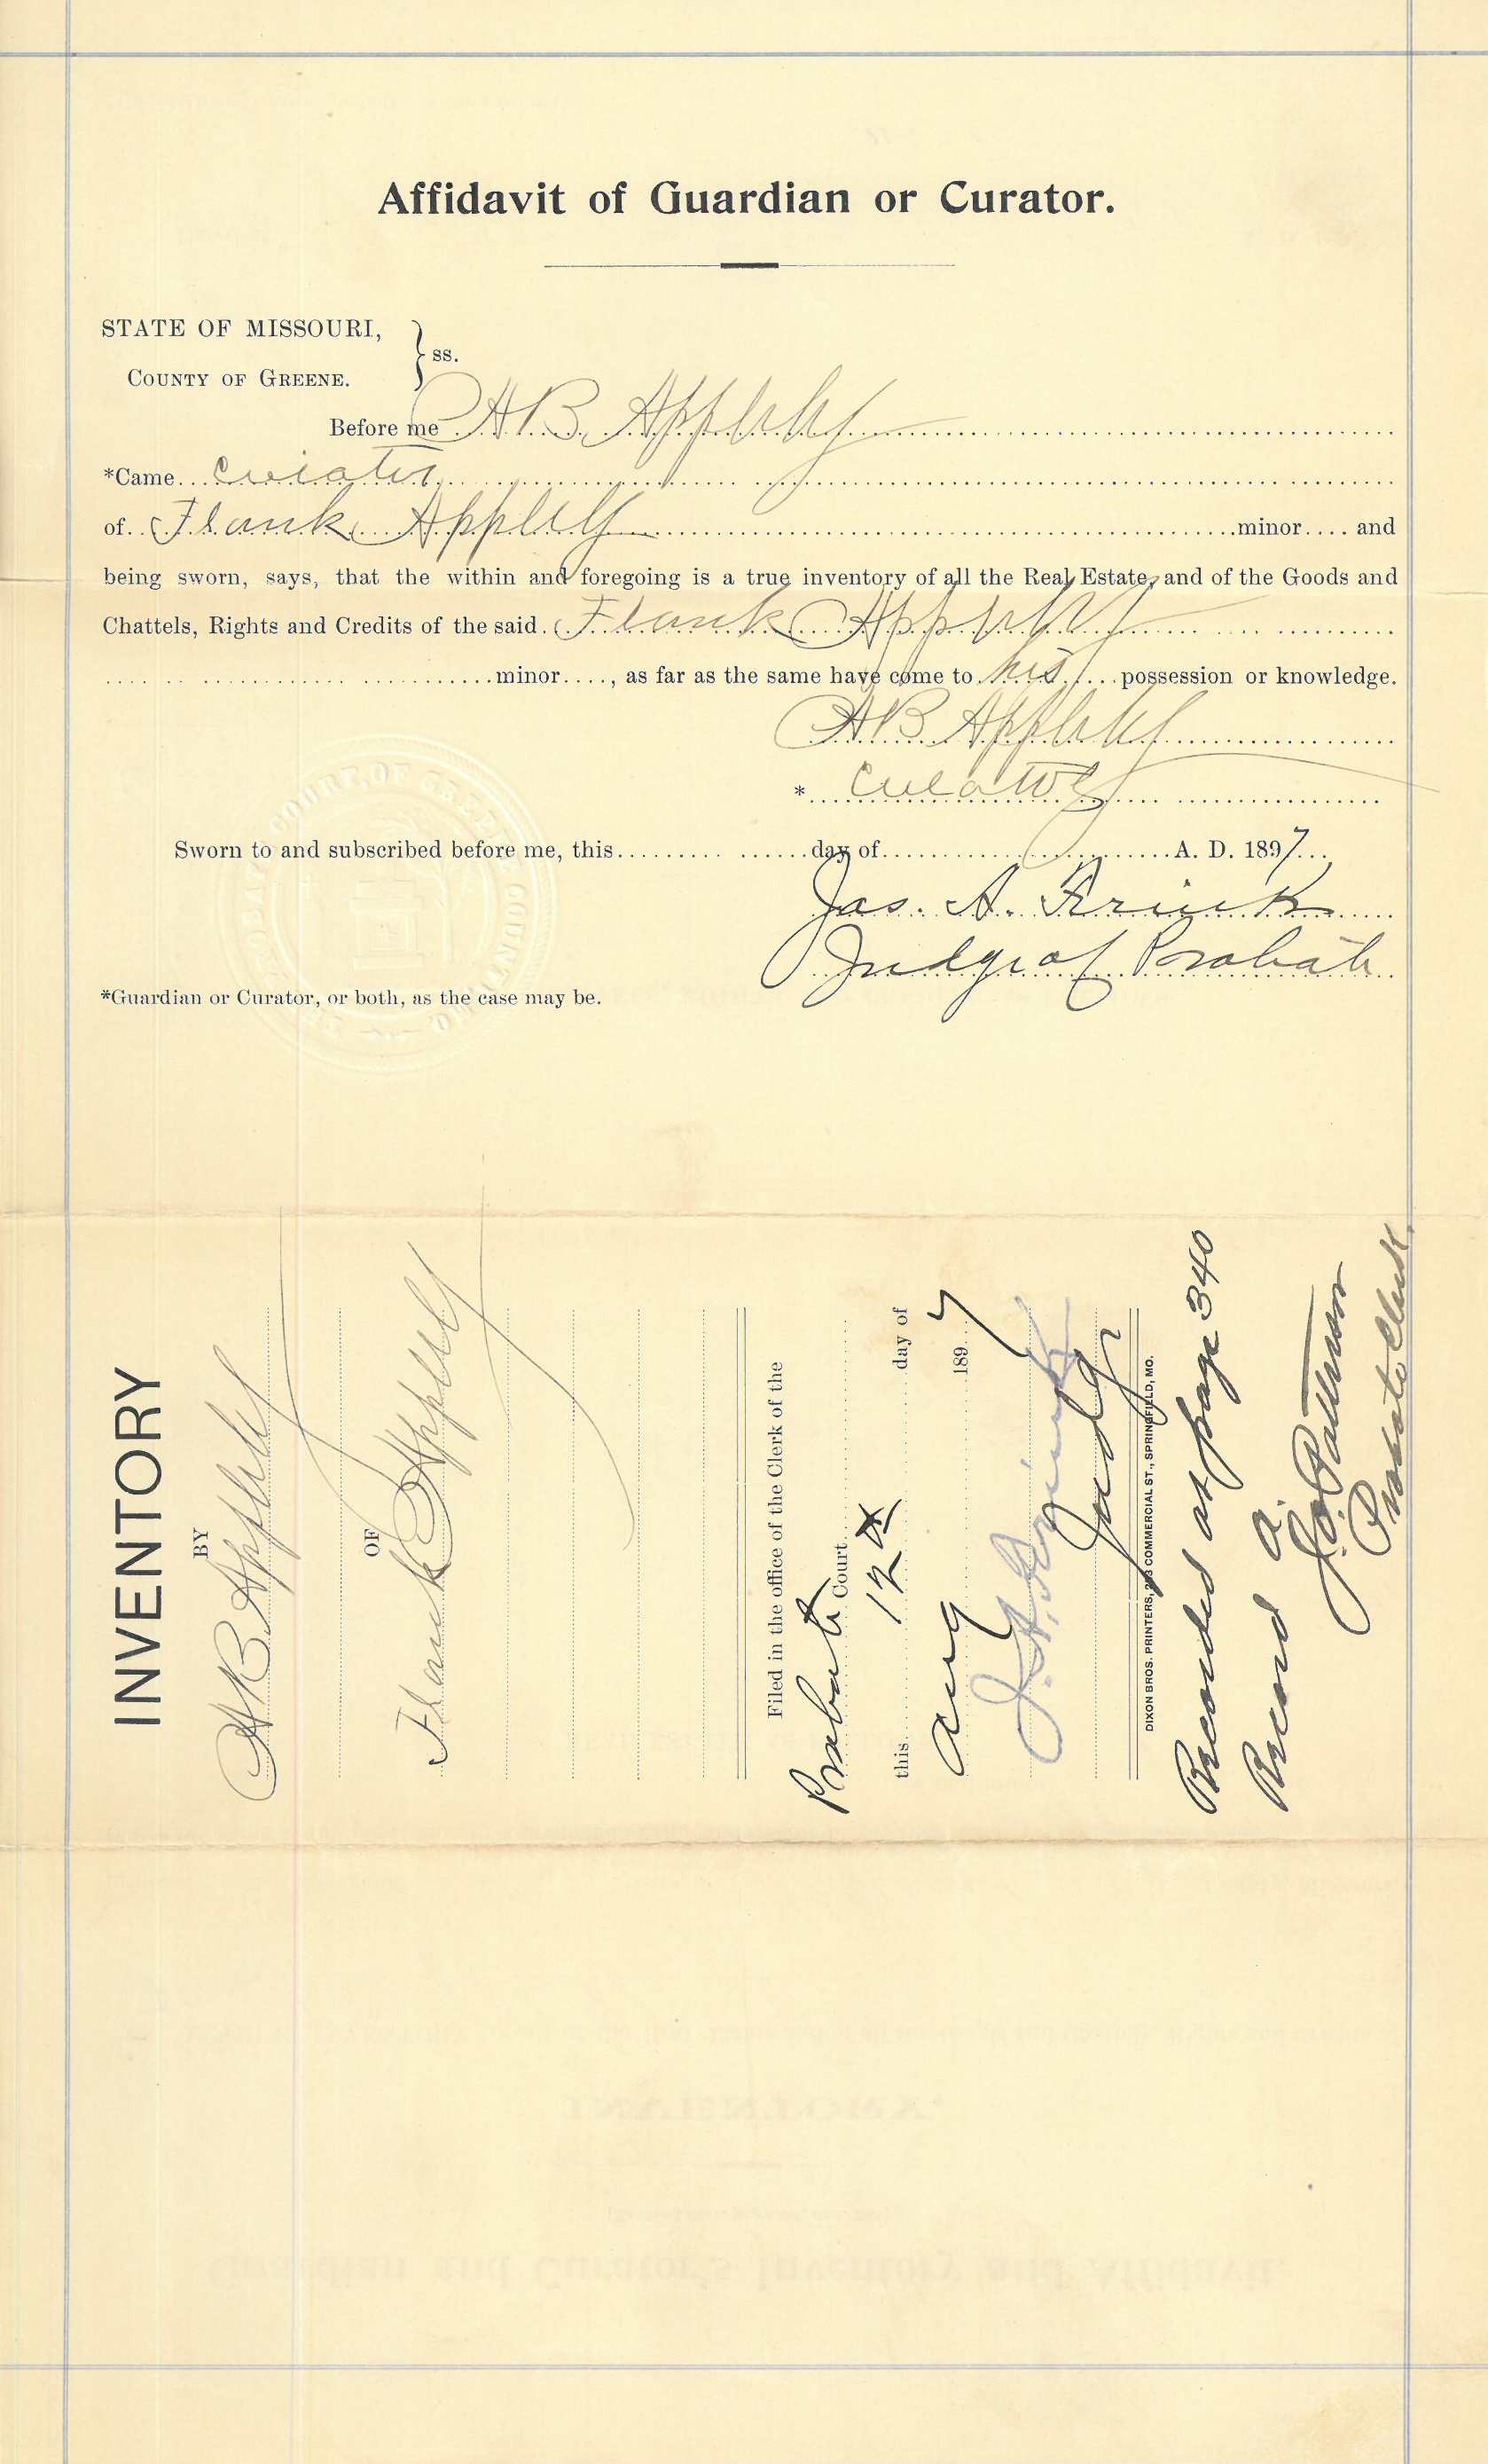 Affidavit of Guardian or Curator.
STATE OF MISSOURI,
COUNTY OF GREENE. } ss.
Before me A B Appleby
*Came curator
of Frank Appleby minor and
being sworn, says, that the within and foregoing is a true inventory of all the Real Estate, and of the Goods and
Chattels, Rights and Credits of the said Frank Appleby
minor, as far as the same have come to his possession or knowledge.
A B Appleby
* Curator
Sworn to and subscribed before me, this day of A. D. 1897
Jas. A. Frink
Judge of Probate
*Guardian or Curator, or both, as the case may be.
PROBATE COURT, OF GREENE COUNTY, MO
INVENTORY
BY
A B Appleby
OF
Frank Appleby
Filed in the office of the Clerk of the
Probate Court
this 12th day of
Aug 1897
J. A. Frink
Judge
DIXON BROS. PRINTERS, COMMERCIAL ST., SPRINGFIELD, MO.
Recorded at page 340
Record a.
J. O. Patterson
Probate Clerk.
INVENTORY.
Guardian and Curator's Inventory and Affidavit.